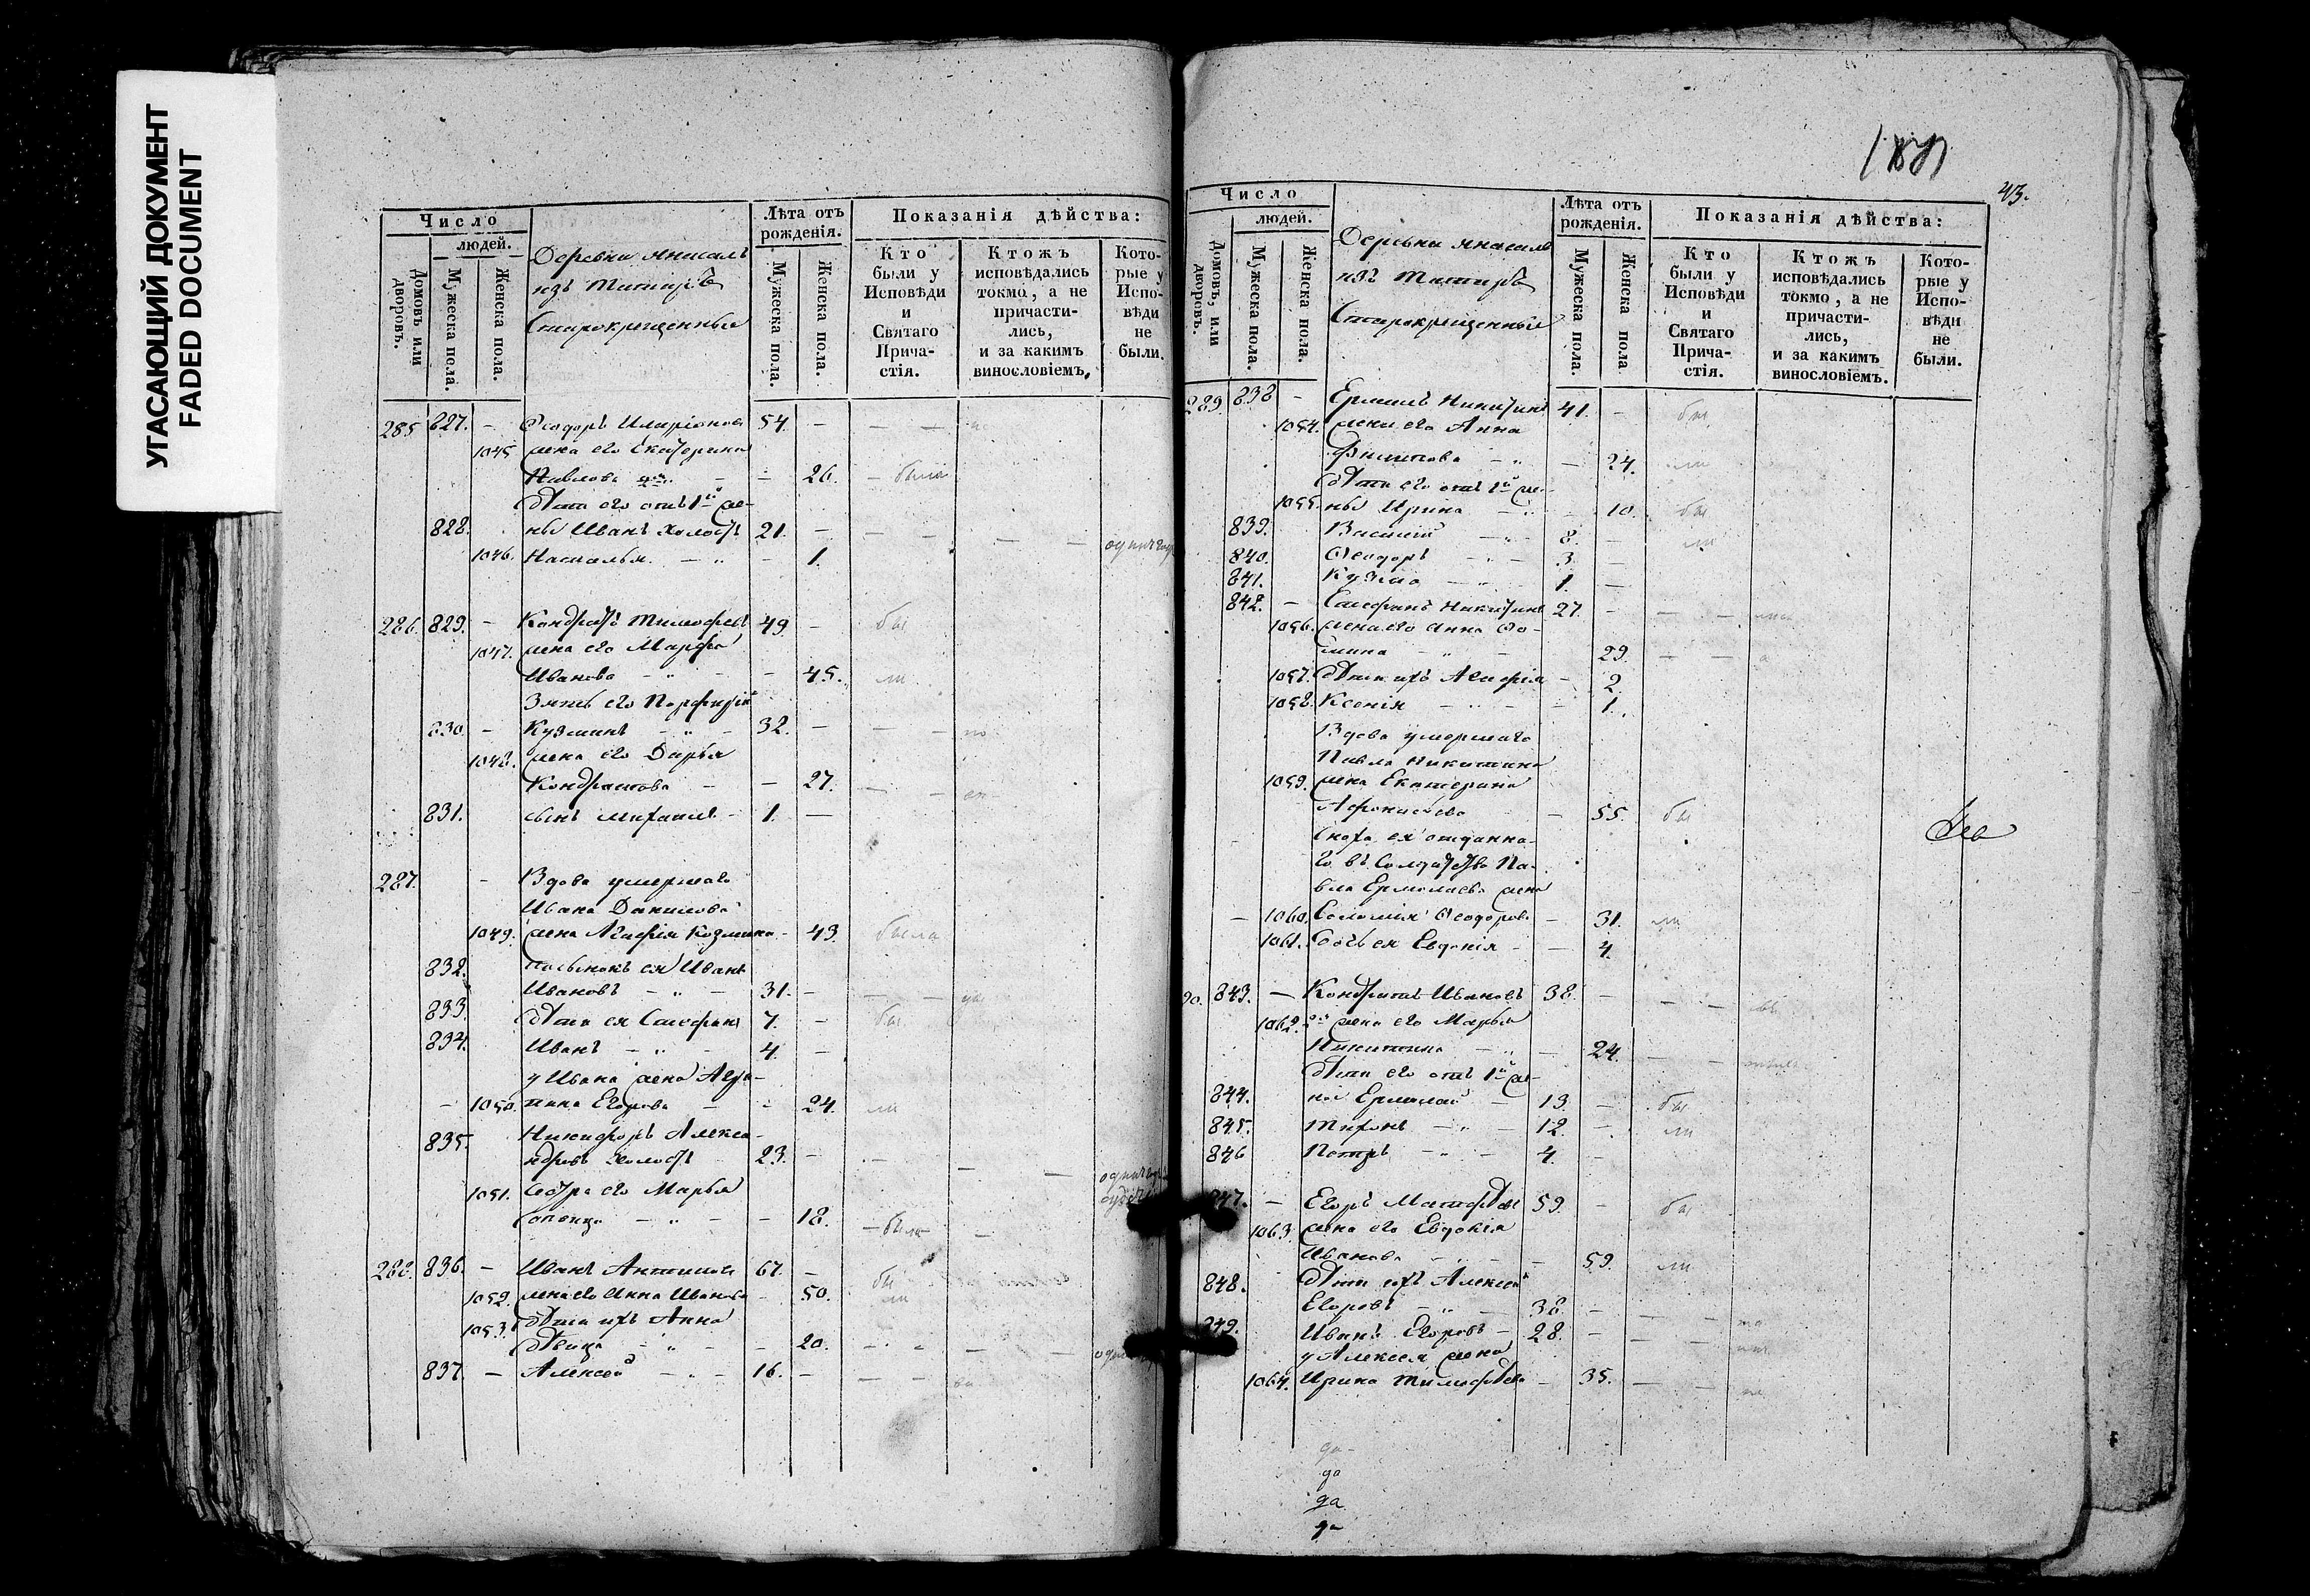 УГАСАЮЩИЙ ДОКУМЕНТ
FADED DOCUMENT
Число
людей.
Домовъ или дворовъ.
Мужеска пола.
Женска пола.
Деревни
изъ Татаръ
Старокрещенные
Лѣта отъ рожденія.
Мужеска пола.
Женска пола.
Показанія дѣйства:
Кто были у Исповѣди и Святаго Причастія.
Ктожъ исповѣдались токмо, а не причастились, и за какимъ винословіемъ.
Которые у Исповѣди не были.
285 827. - Ѳеодоръ Иларіоновъ 54. -
1045 жена его Екатерина
Павлова - 26. - была
дѣти его отъ 1й же-
828. ны Иванъ холостъ 21. -
1046. Наталья - 1.
286. 829. - Кондратъ Тимофеевъ 49. - бы
1047. жена его Марфа
Иванова - 45. ли
Зять его Порфирій
830. - Кузминъ 32. -
1048. жена его Дарья
Кондратова - 27.
831. сынъ Михаилъ 1. -
287. - Вдова умершаго
Ивана Данилова
1049. жена Агафія Козмина - 43 была
832. пасынокъ ея Иванъ
Ивановъ 31. -
833. дѣти ея Стефанъ 7. - бы
834. Иванъ 4. -
у Ивана жена Агра-
1050. пина Егорова - 24. ли
835. Никифоръ Алекса-
ндровъ холостъ 23. -
1051. Сестра его Марья
- 18. - была
288. 836. - Иванъ Антиповъ 67. - бы
1052. жена его Анна Иванова - 50. ли
1053. дѣти ихъ Анна
дѣвица - 20.
837. - Алексей 16. -
43.
Число
людей.
Домовъ, или дворовъ.
Мужеска пола
Женска пола.
Деревни
изъ Татаръ
Старокрещенные
Лѣта отъ рожденія.
Мужеска пола.
Женска пола
Показанія дѣйства:
Кто были у Исповѣди и Святаго Причастія.
Ктожъ исповѣдались токмо, а не причастились, и за какимъ винословіемъ.
Которые у Исповѣди не были.
289. 838 - Ермилъ Никитинъ 41. - бы
1054. жена его Анна
Филипова - 24. ли
дѣти его отъ 1й же-
1055. ны Ирина - 10. бы
839. Василий 8. - ли
840. Ѳеодоръ 3. -
841. Кузма 1. -
842. - Стефанъ Никитинъ 27. -
1056. жена его Анна Ѳо-
мина 29.
1057. дѣти ихъ Агафія - 2.
1058. Ксенія - 1.
Вдова умершаго
Павла Никитина
1059. жена Екатерина
Афонасьева - 55. бы
Сноха ея отданна-
го въ Солдатство Па-
вла Ермолаева жена
- 1060. Соломія Ѳеодорова - 31. ли
1061. дочь ея Евдокія - 4.
90. 843. - Кондратъ Ивановъ 38. -
1062. 2я жена его Марья
Никитина - 24.
дѣти его отъ 1й же-
844. ны Ермолай 13. - бы
845. Тихонъ 12. - ли
846 Петръ 4. -
847. - Егоръ Матфѣевъ 59. - бы
1063. жена его Евдокія
Иванова - 59. ли
848. дѣти ихъ Алексей
Егоровъ 38. -
849. Иванъ Егоровъ 28. -
у Алексея жена
1064. Ирина Тимофѣева - 35.
да
да
да
да